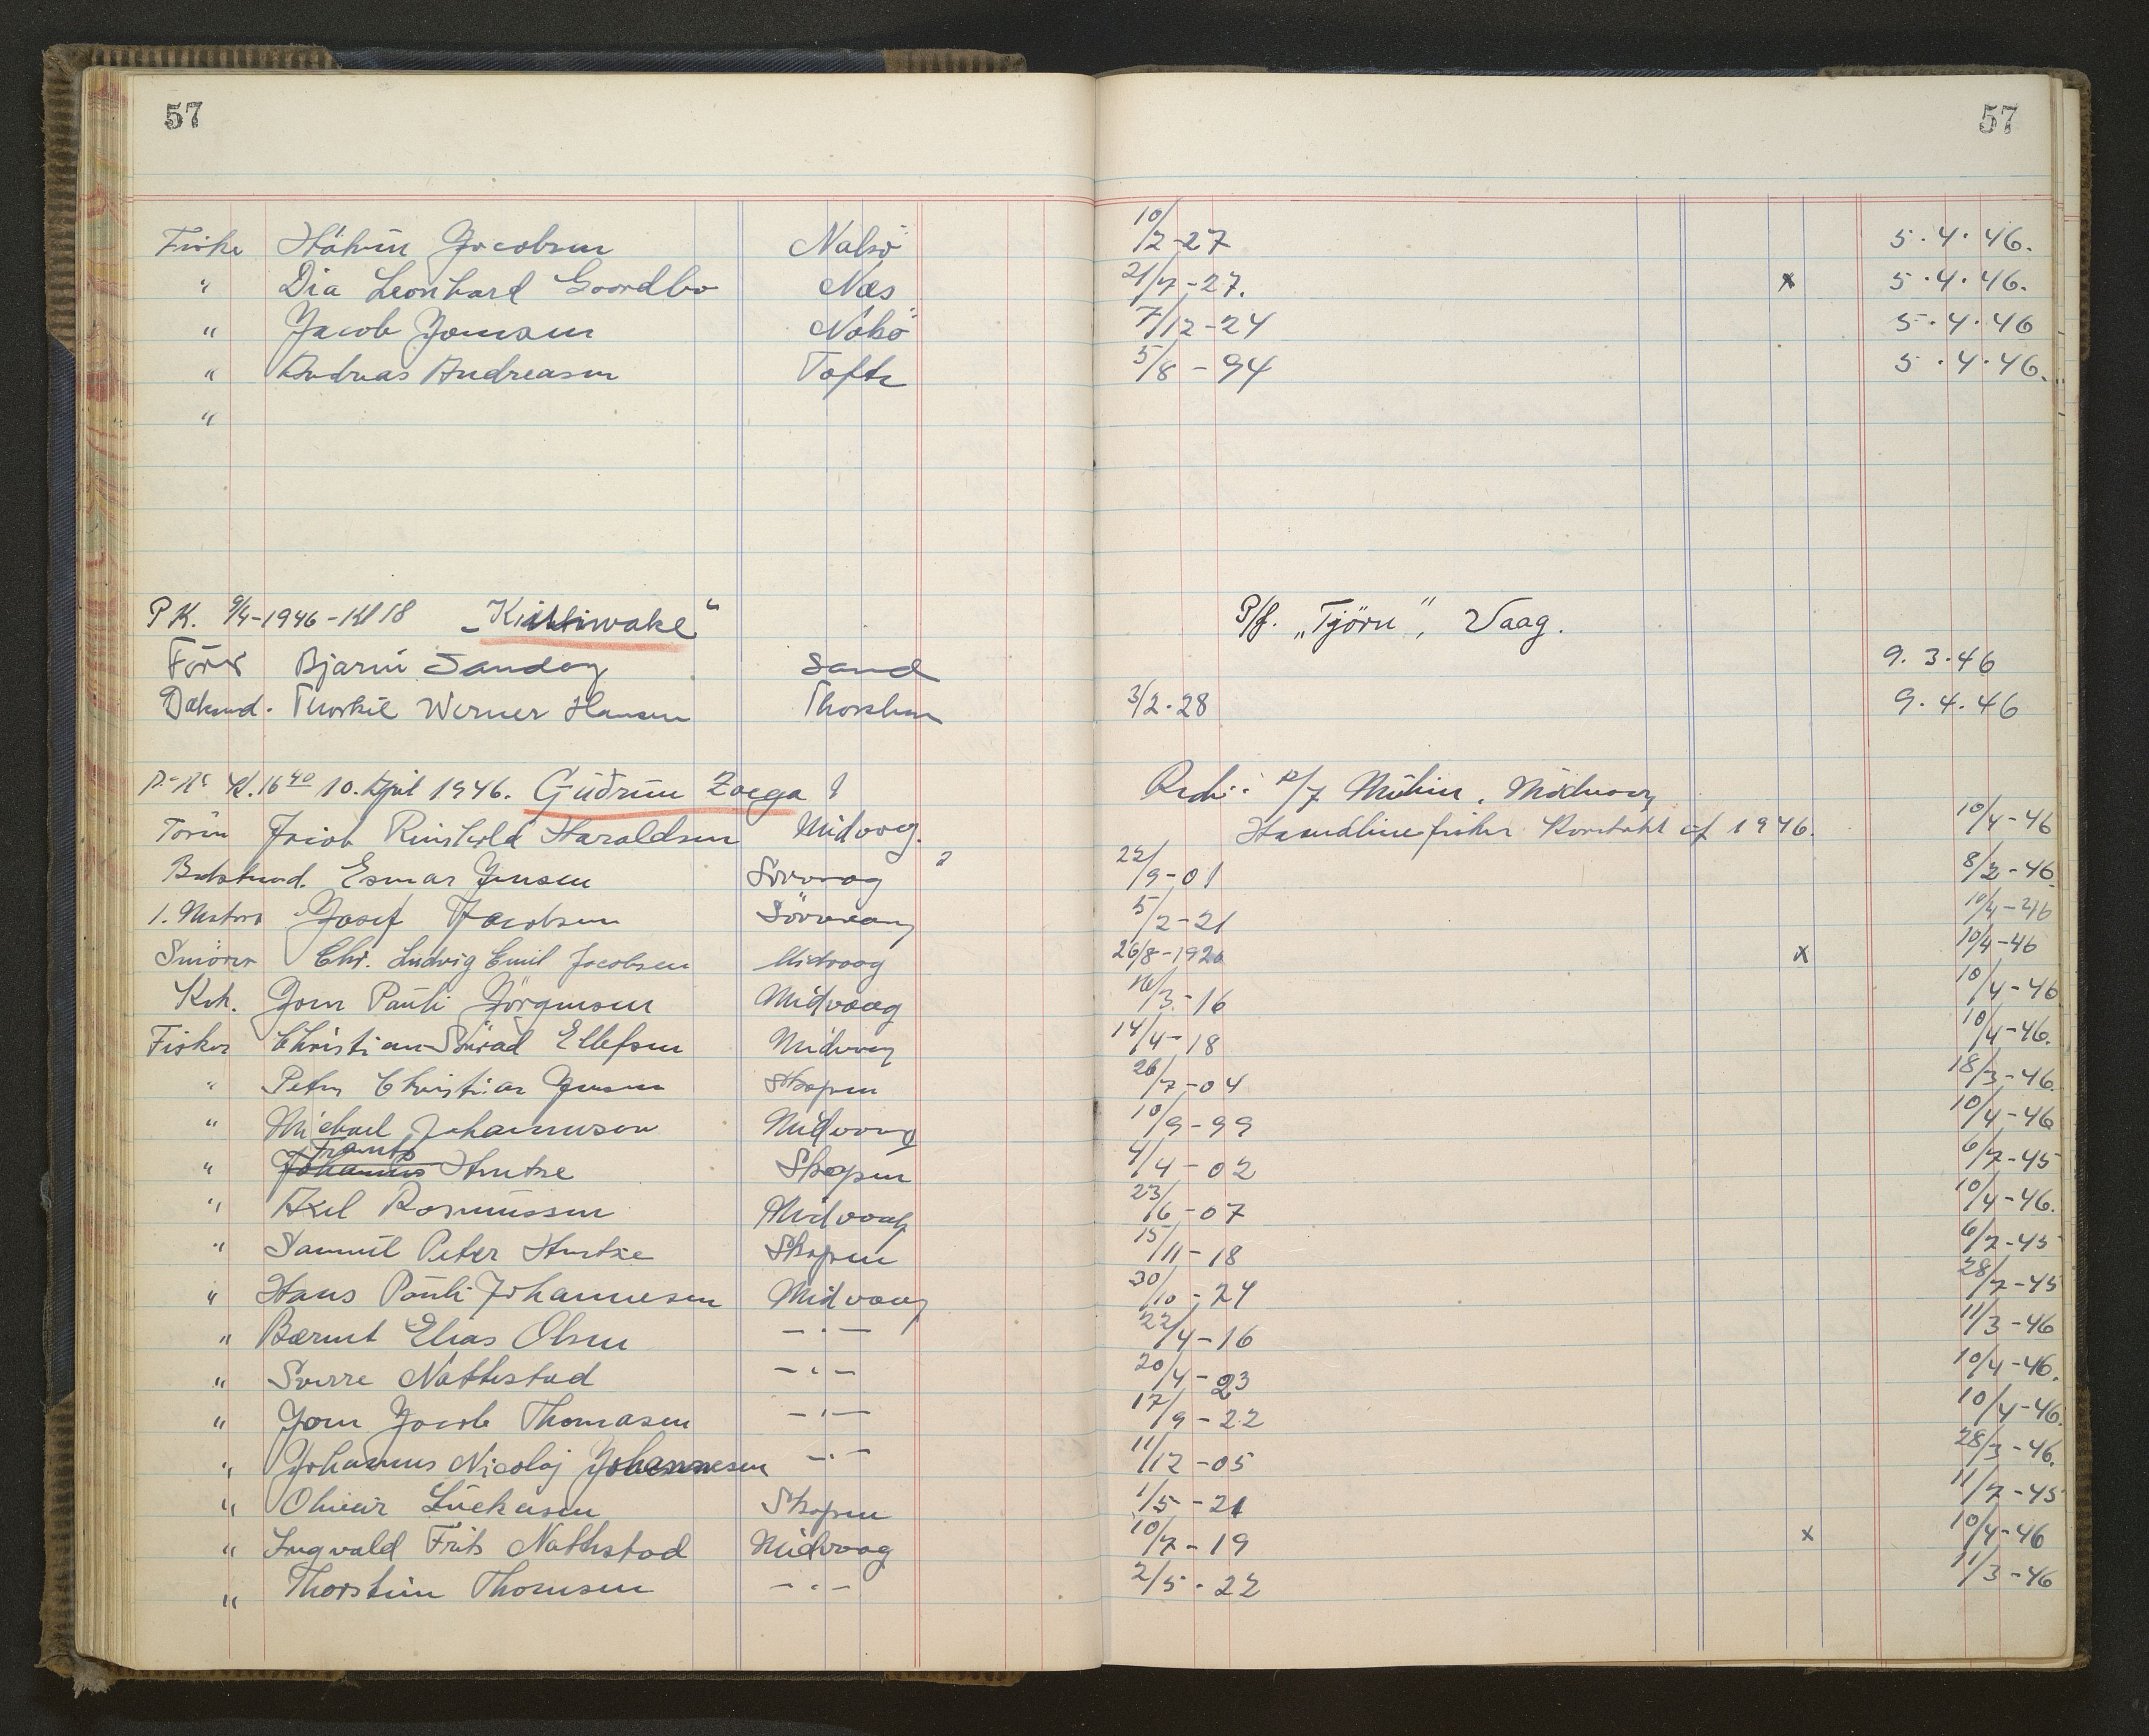 57 57
Fiske Hákun Jacobsen Nalsö 10/2-27 5.4.46.
" Dia Leonhard Goordbo Næs 21/7-27. x 5.4.46.
" Jacob Joensen Nolsö 7/12-24 5.4.46
" Andreas Andreasen Tofte 5/8-94 5.4.46.
"
P.K. 9/4-1946-Kl 18 „Kittiwake" P/f. „Tjörn", Vaag.
Förer Bjarni Sandoy Sand 9.3.46
Thorkil Werner Hansen Thorshvn 3/2.28 9.4.46
Kl. 16 40 10. April 1946. Gudrun Zoega P/f Midvaag
Jacob Reinhold Haraldsen Midvaag. Handlinefisker Kontrakt af 1946. 10/4-46
Bedstmd. Esmar Jensen Sörvaag 22/9-01 8/2-46
1. Motorp Josef Jacobsen Sörvaag 5/2-21 10/4-46
Smörer Chr. Ludvig Emil Jacobsen Midvaag 26/8-1920 x 10/4-46
Kok. Joen Pauli Jörgensen Midvaag 16/3-16 10/4-46
Fisker Christian Ellefsen Midvaag 14/4-18 10/4-46.
" Peter Christian Jensen Skopen 26/7-04 18/3-46.
" Michael Johannesen Midvaag 10/9-99 10/4-46
Frants
" Johannes Hentze Skopen 4/4-02 6/7-45
" Axel Rasmussen Midvaag 23/6-07 10/4-46.
" Samuel Peter Hentze Skopen 15/11-18 6/7-45
" Hans Pauli Johannesen Midvaag 30/10-24 28/7-45
" Bærent Elias Olsen -"- 22/4-16 11/3-46
" Sverre Nattestad -"- 20/4-23 10/4-46.
" Joen Jacob Thomasen -"- 17/9-22 10/4-46.
" Johannes Nicolaj Johannesen -"- 11/12-05 28/3-46.
" Olivur Lüchasen Skopen 1/5-21 11/7-45
" Ingvald Frits Nattestad Midvaag 10/7-19 x 10/4-46
" Thorstein Thomsen -"- 2/5-22 11/3-46